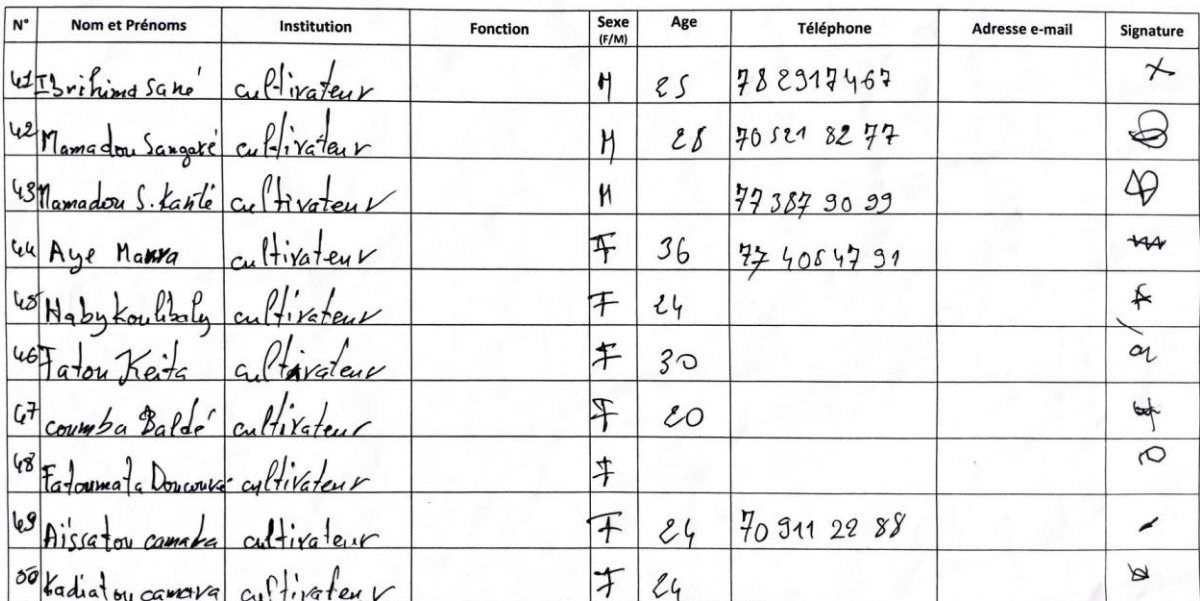 N° Nom et Prénoms Institution Fonction Sexe (F/M) Age Téléphone Adresse e-mail Signature
41 Ibrihima Sané cultivateur M 25 78 2917467
42 Mamadou Sangaré cultivateur M 28 70 521 82 77
43 Mamadou S. Kanté cultivateur M 77 387 90 99
44 Aye Manra cultivateur F 36 77 408 47 91
45 Haby Koulibaly cultivateur F 24
46 Fatou Keita cultivateur F 30
47 coumba Baldé cultivateur F 20
48 Fatoumata Doucouré cultivateur F
49 Aïssatou camara cultivateur F 24 70 911 22 88
50 Kadiatou camara cultivateur F 24